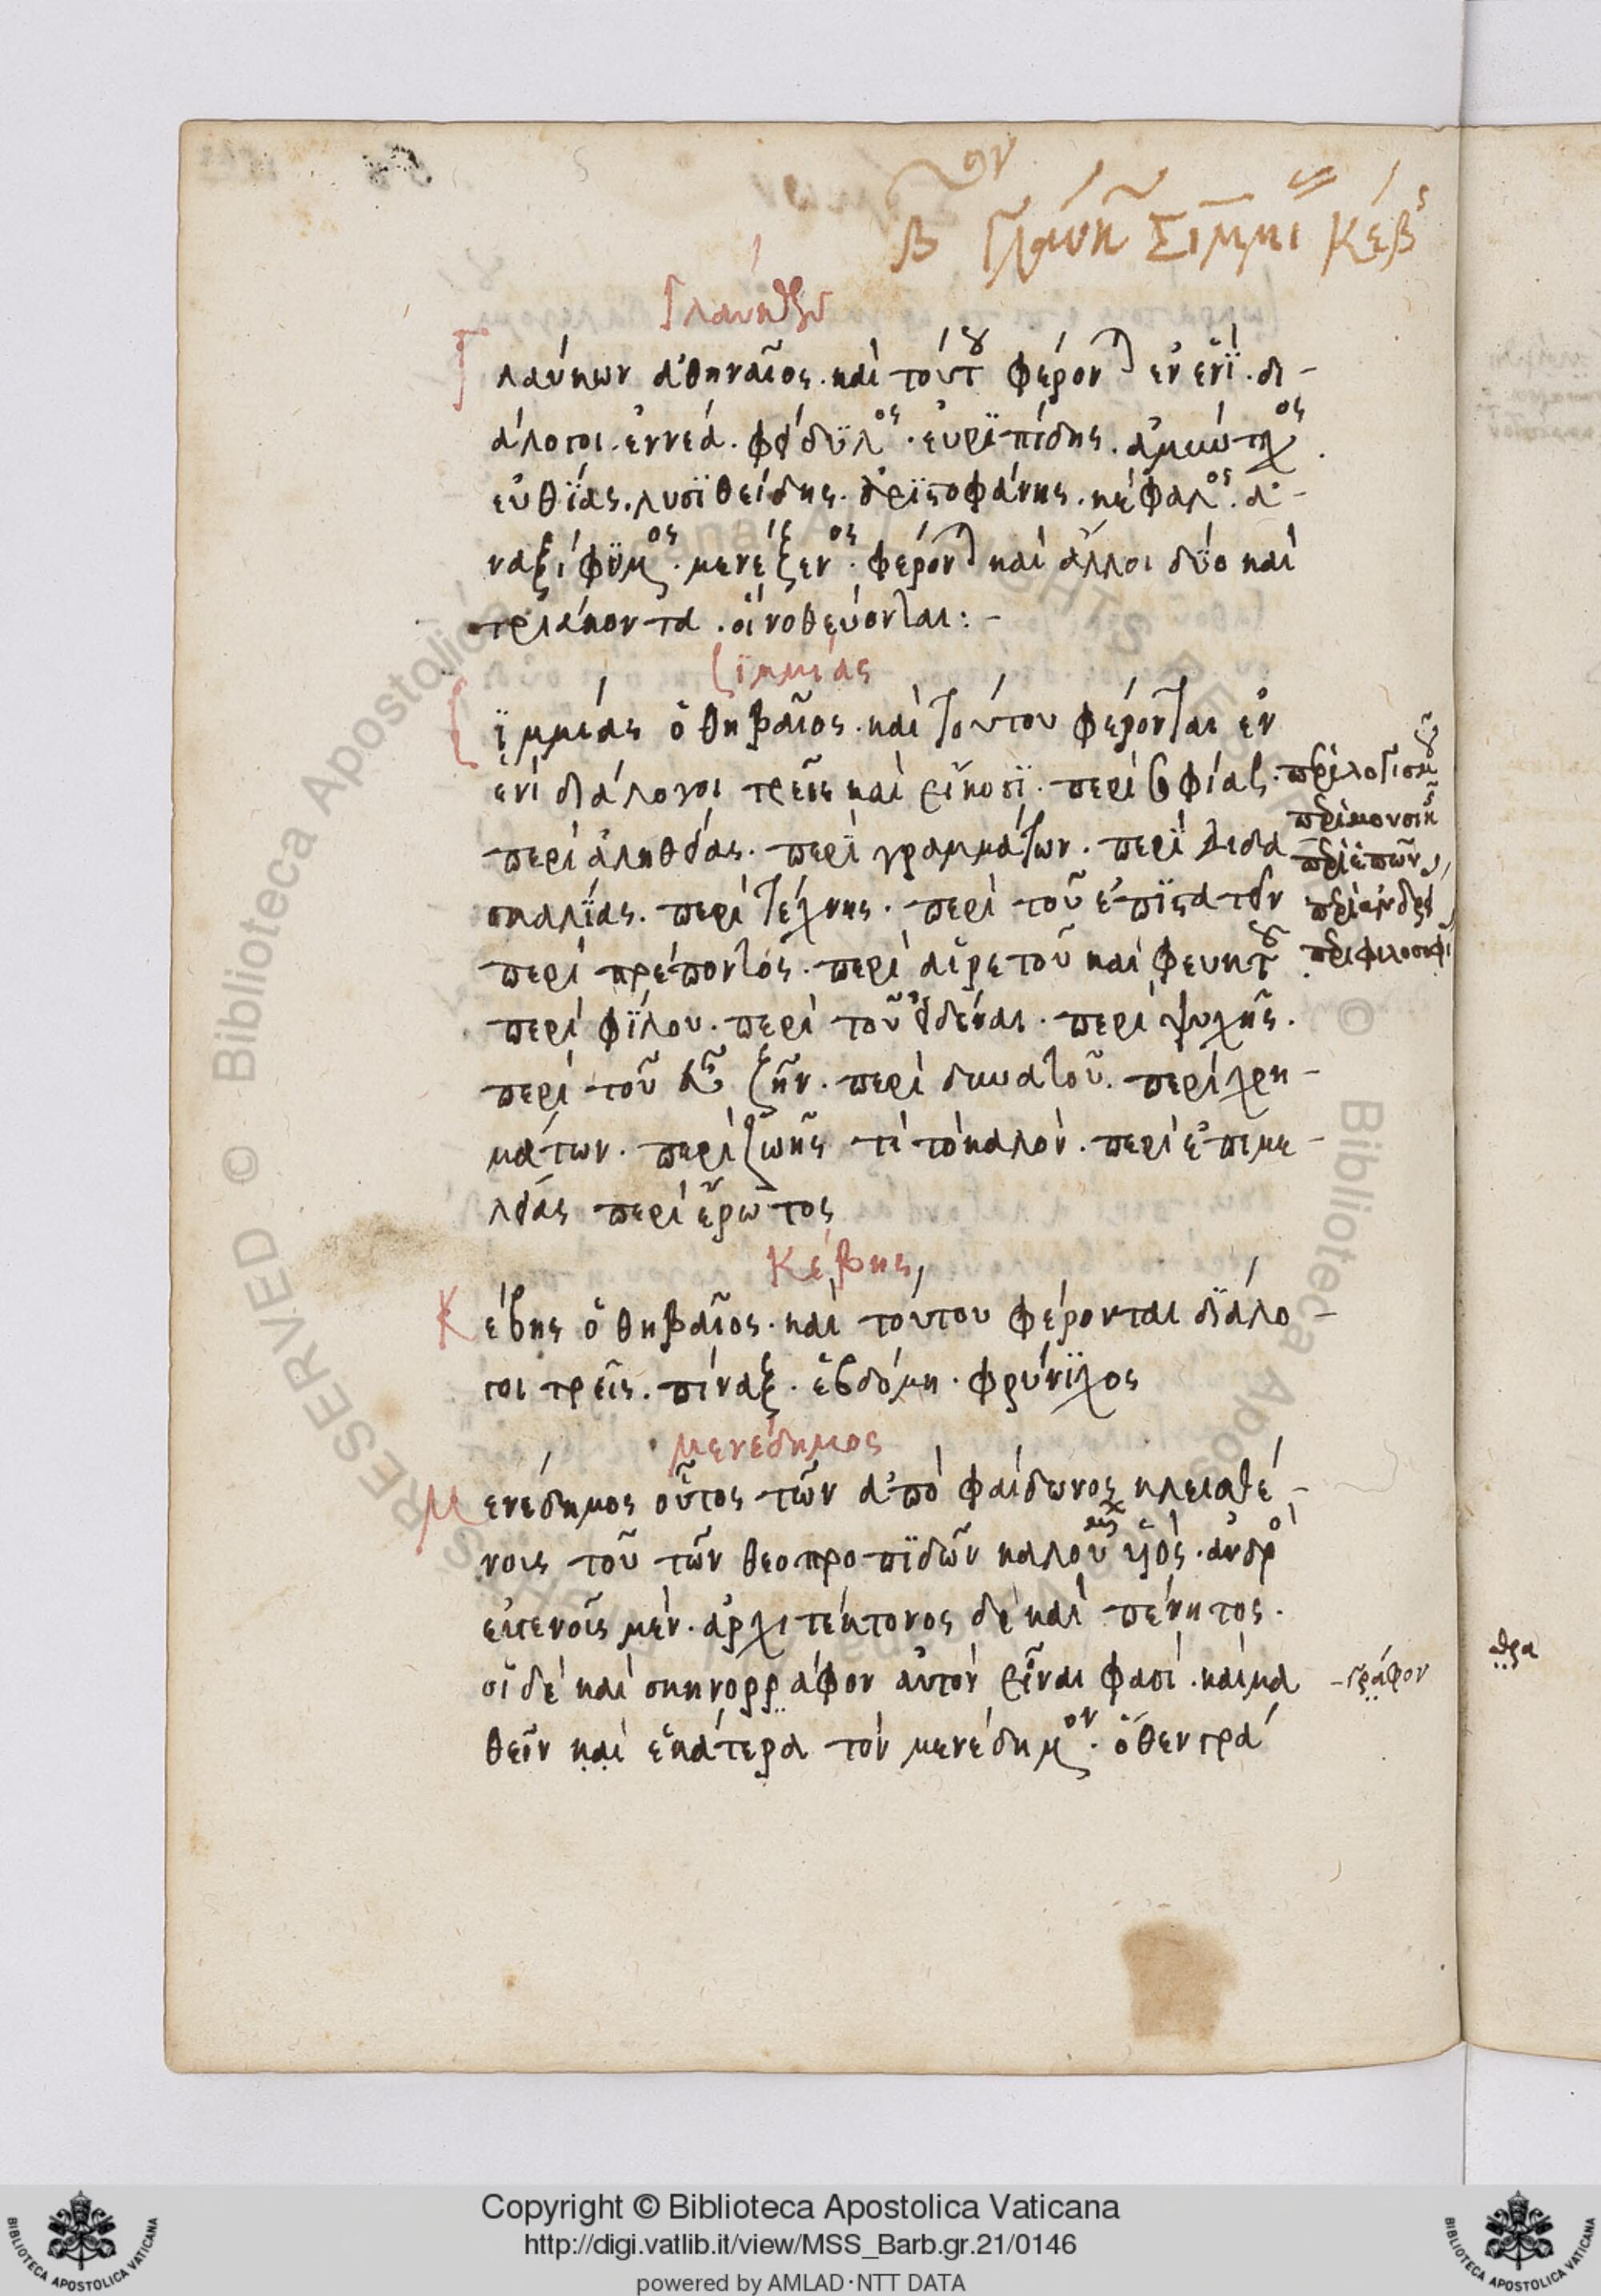 Β ον Γλαύκ Σιμμι Κέβς
Γλαύκων
Γλαύκων ἀθηναῖος. καὶ τούτου φέρονται ἐν ἑνὶ. δι-
άλογοι. ἐννέα. φείδυλος. εὐριπίδης. ἀμύντιχος.
εὐθίας. λυσϊθείδης. ἀριστοφάνης. κέφαλος. ἀ-
ναξίφϋμος. μενέξενος. φέρονται καὶ ἄλλοι δύο καὶ
τριάκοντα. οἱ νοθεύονται:-
Σϊμμίας
Σϊμμίας ὁ θηβαῖος. καὶ τούτου φέρονται ἐν
ἑνὶ διάλογοι τρεῖς καὶ εἴκοσϊ. περὶ σοφίας. περὶ λογισμοῦ
περὶ μουσικῆς
περὶ ἀληθείας. περὶ γραμμάτων. περὶ διδα
περὶ ἐπῶν
σκαλΐας. περὶ τέχνης. περὶ τοῦ ἐπϊστατεῖν
περὶ ἀνδρεί
περὶ πρέποντος. περὶ αἱρετοῦ καὶ φευκτοῦ
περὶ φιλοσοφί
περὶ φΐλου. περὶ τοῦ εἰδέναι. περὶ ψυχῆς.
περὶ τοῦ εὖ ζῆν. περὶ δυνατοῦ. περὶ χρη-
μάτων. περὶ ζωῆς τί τὸ καλὸν. περὶ ἐπιμε-
λείας περὶ ἔρωτος
Κέβης
Κέβης ὁ θηβαῖος. καὶ τούτου φέρονται δϊάλο-
γοι τρεῖς. πίναξ. ἑβδόμη. φρύνϊχος
Μενέδημος
Μενέδημος οὗτος τῶν ἀπὸ φαίδωνος κλεισθέ-
νοις τοῦ τῶν θεοπροπϊδῶν καλουμένων υἱὸς. ἀνδρὸς
εὐγενοῖς μὲν. ἀρχιτέκτονος δὲ καὶ πένητος.
οἱ δὲ καὶ σκηνορράφον αὐτὸν εἶναι φασὶ. καὶ μα
-γράφον
θεῖν καὶ ἑκάτερα τὸν μενέδημον. ὅθεν γρά
θρα
Copyright © Biblioteca Apostolica Vaticana
http://digi.vatlib.it/view/MSS_Barb.gr.21/0146
powered by AMLAD·NTT DATA